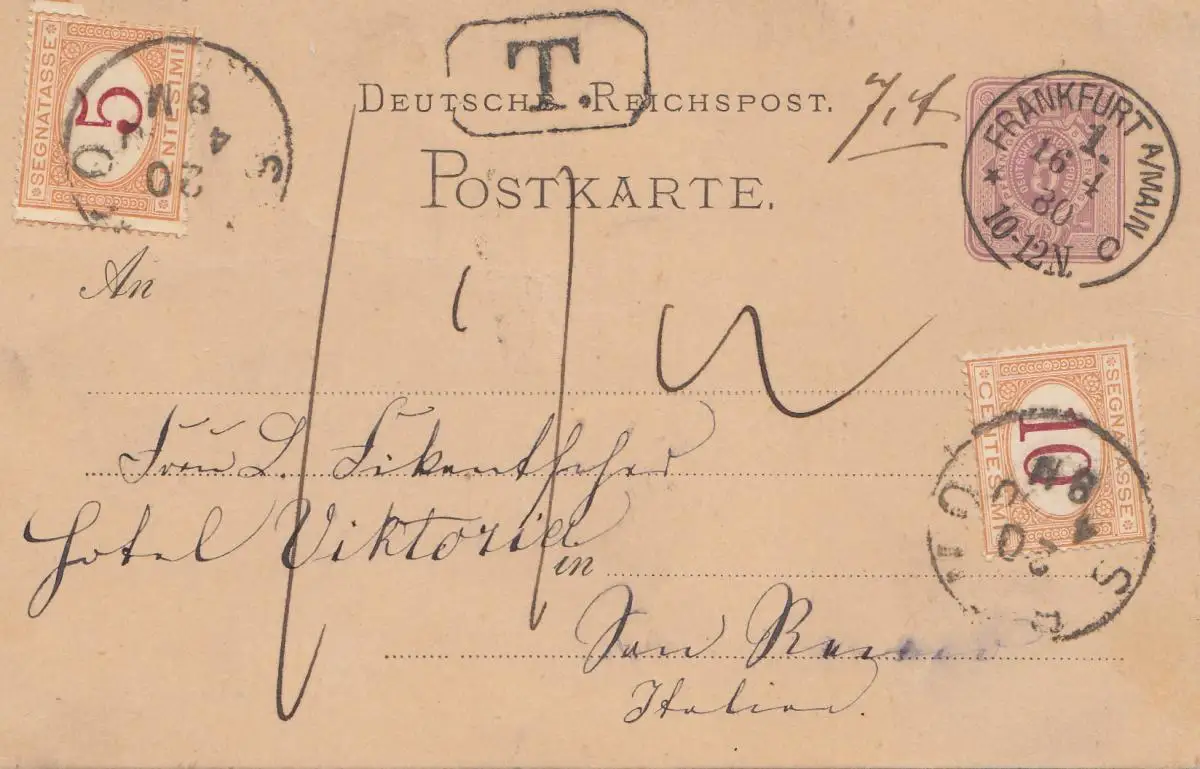 SEGNATASSE 5 CENTESIMI
8 M
4
20
T.
DEUTSCHE REICHSPOST.
POSTKARTE.
FRANKFURT A/MAIN
1.
16
4
80
10-12N.
An
SEGNATASSE 10 CENTESIMI
8 M
4
S R
Frau L. Fikentscher
Hotel Viktoria
in
San Remo
Italien.